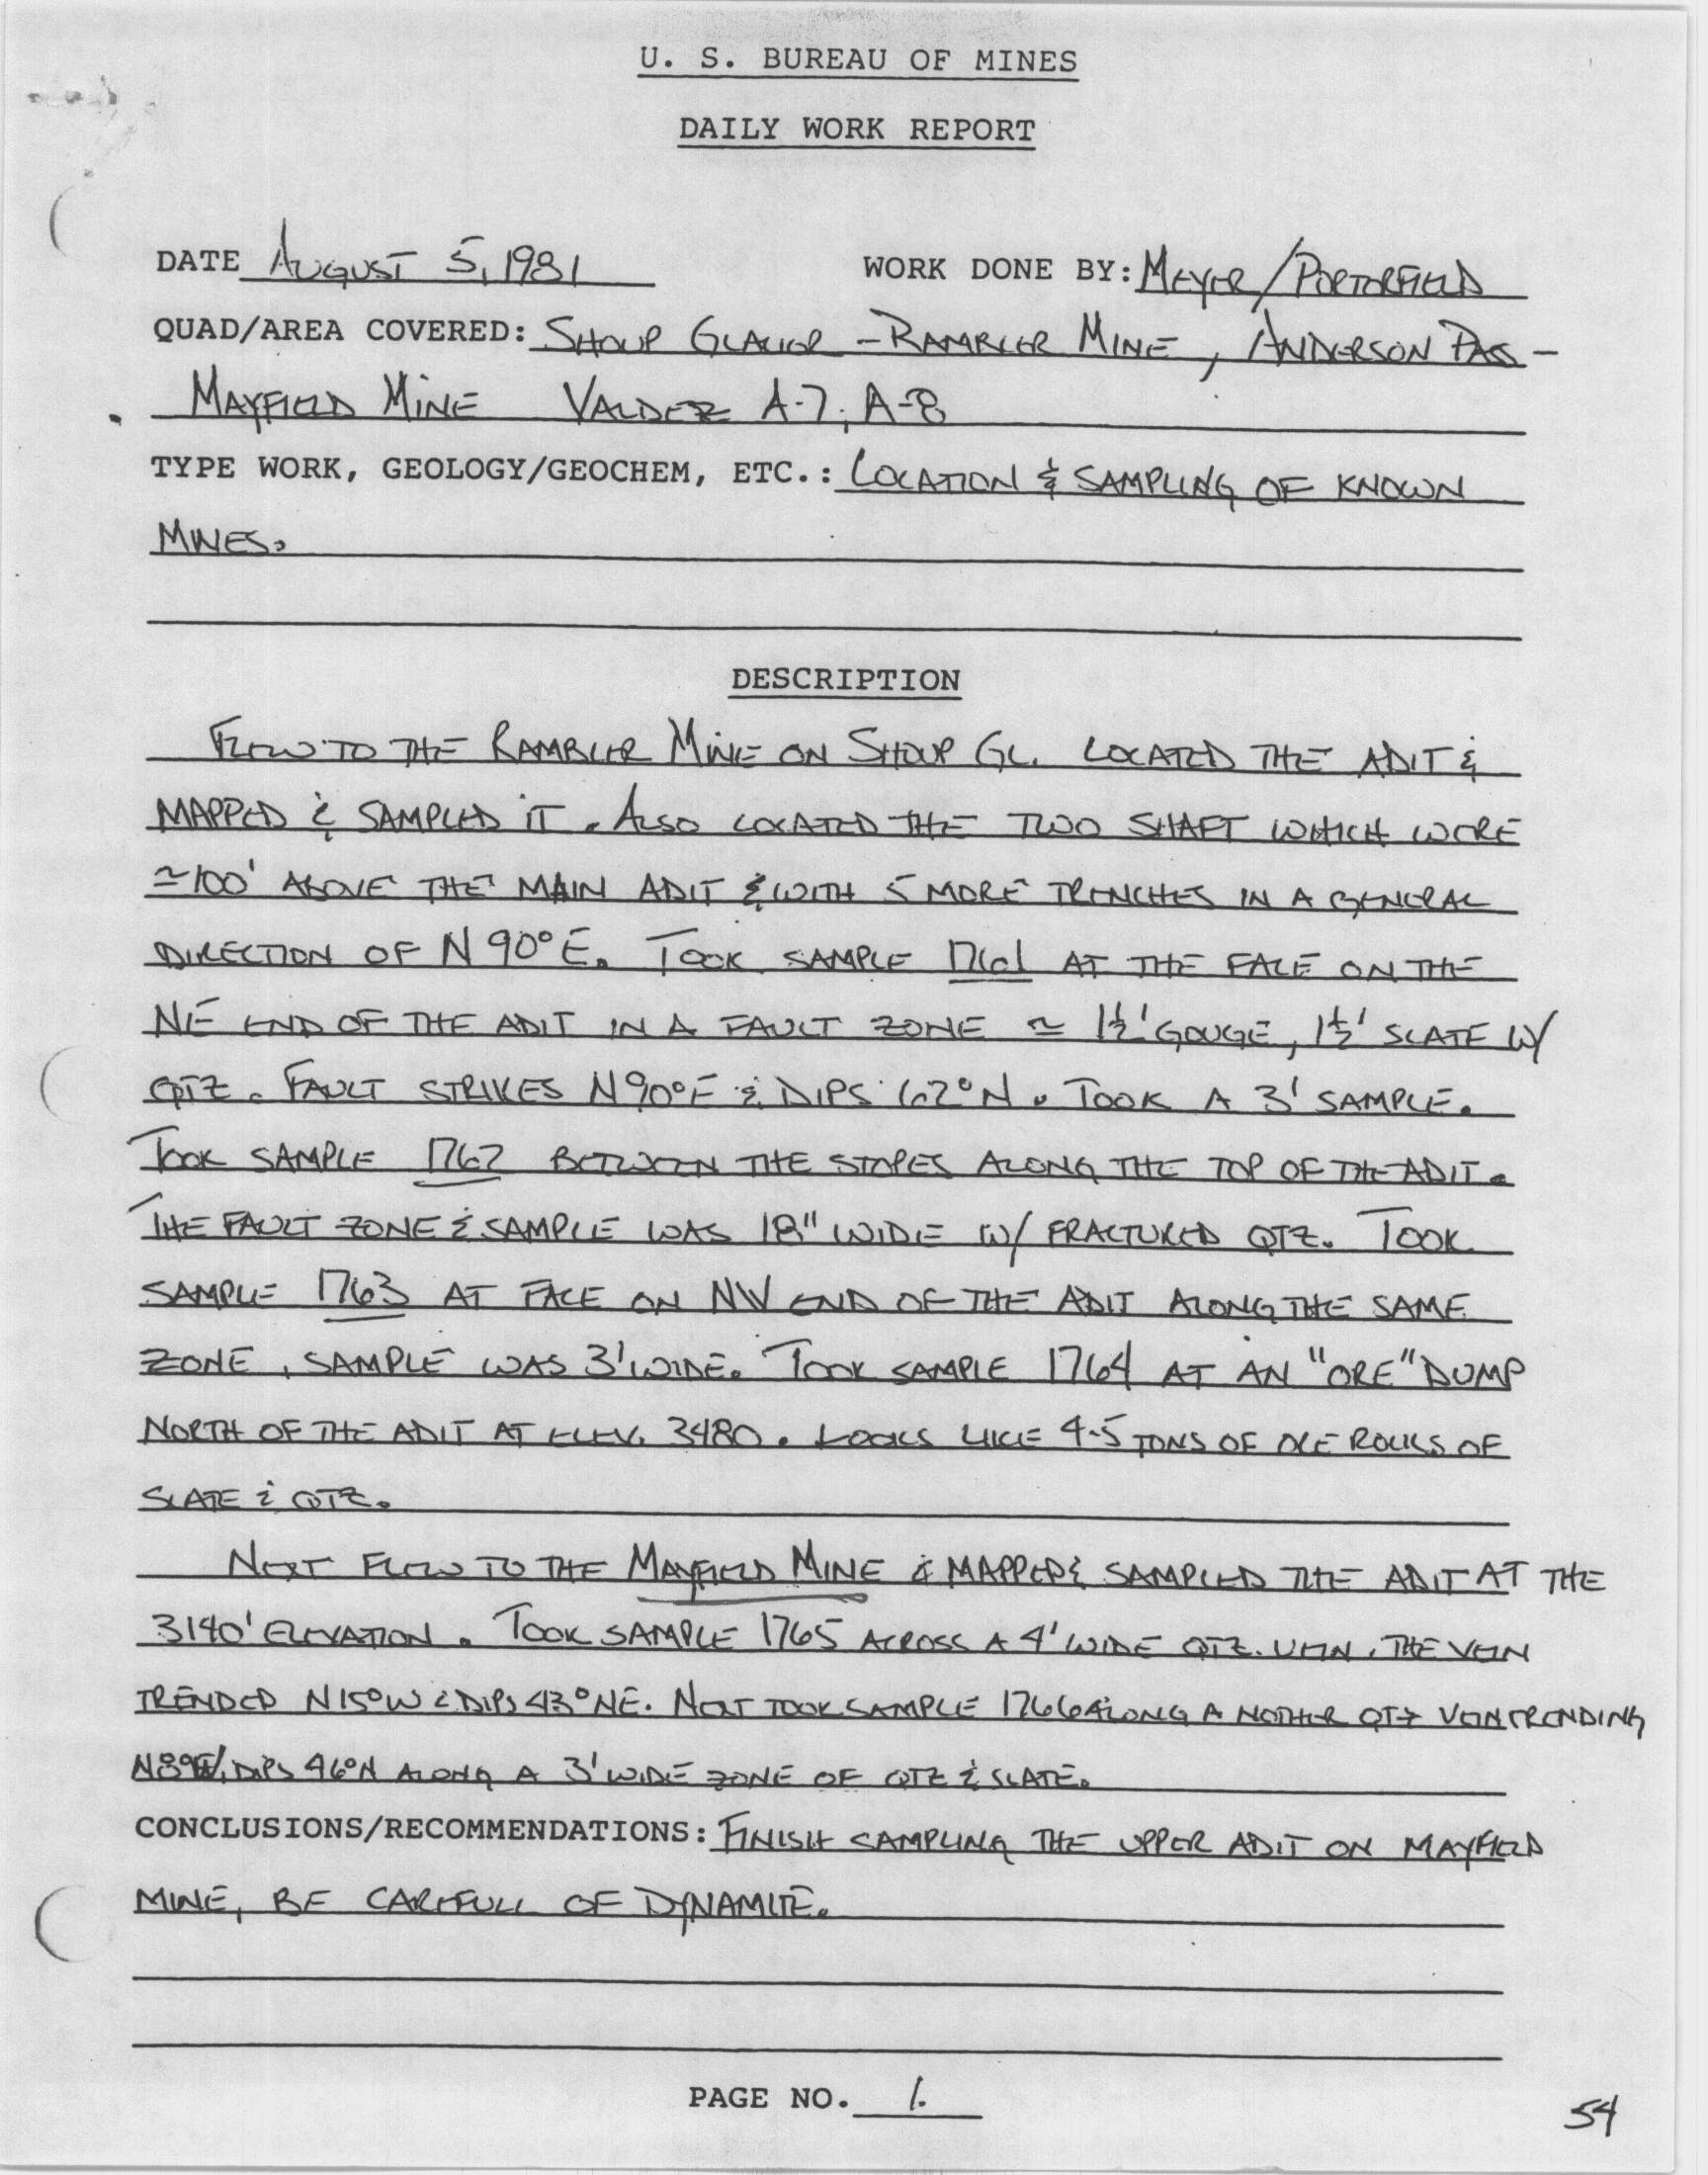 U. S. BUREAU OF MINES
DAILY WORK REPORT
DATE AUGUST 5, 1981 WORK DONE BY: MEYER/PORTERFIELD
QUAD/AREA COVERED: SHOUP GLACIER - RAMBLER MINE, ANDERSON PASS -
MAYFIELD MINE VALDEZ A-7, A-8
TYPE WORK, GEOLOGY/GEOCHEM, ETC.: LOCATION & SAMPLING OF KNOWN
MINES.
DESCRIPTION
FLEW TO THE RAMBLER MINE ON SHOUP GL. LOCATED THE ADIT &
MAPPED & SAMPLED IT. ALSO LOCATED THE TWO SHAFT WHICH WERE
≈100' ABOVE THE MAIN ADIT & WITH 5 MORE TRENCHES IN A GENERAL
DIRECTION OF N 90°E. TOOK SAMPLE 1761 AT THE FACE ON THE
NE END OF THE ADIT IN A FAULT ZONE ≈ 1½' GOUGE, 1½' SLATE W/
QTZ. FAULT STRIKES N90°E & DIPS 62°N. TOOK A 3' SAMPLE.
TOOK SAMPLE 1762 BETWEEN THE STOPES ALONG THE TOP OF THE ADIT.
THE FAULT ZONE & SAMPLE WAS 18" WIDE W/ FRACTURED QTZ. TOOK
SAMPLE 1763 AT FACE ON NW END OF THE ADIT ALONG THE SAME
ZONE, SAMPLE WAS 3' WIDE. TOOK SAMPLE 1764 AT AN "ORE" DUMP
NORTH OF THE ADIT AT ELEV. 3480. LOOKS LIKE 4-5 TONS OF ORE ROCKS OF
SLATE & QTZ.
NEXT FLEW TO THE MAYFIELD MINE & MAPPED & SAMPLED THE ADIT AT THE
3140' ELEVATION. TOOK SAMPLE 1765 ACROSS A 4' WIDE QTZ. VEIN. THE VEIN
TRENDED N15°W & DIPS 43°NE. NEXT TOOK SAMPLE 1766 ALONG A NOTHER QTZ VEIN TRENDING
DIPS 46°N ALONG A 3' WIDE ZONE OF QTZ & SLATE.
CONCLUSIONS/RECOMMENDATIONS: FINISH SAMPLING THE UPPER ADIT ON MAYFIELD
MINE, BE CAREFULL OF DYNAMITE.
PAGE NO. 1.
54